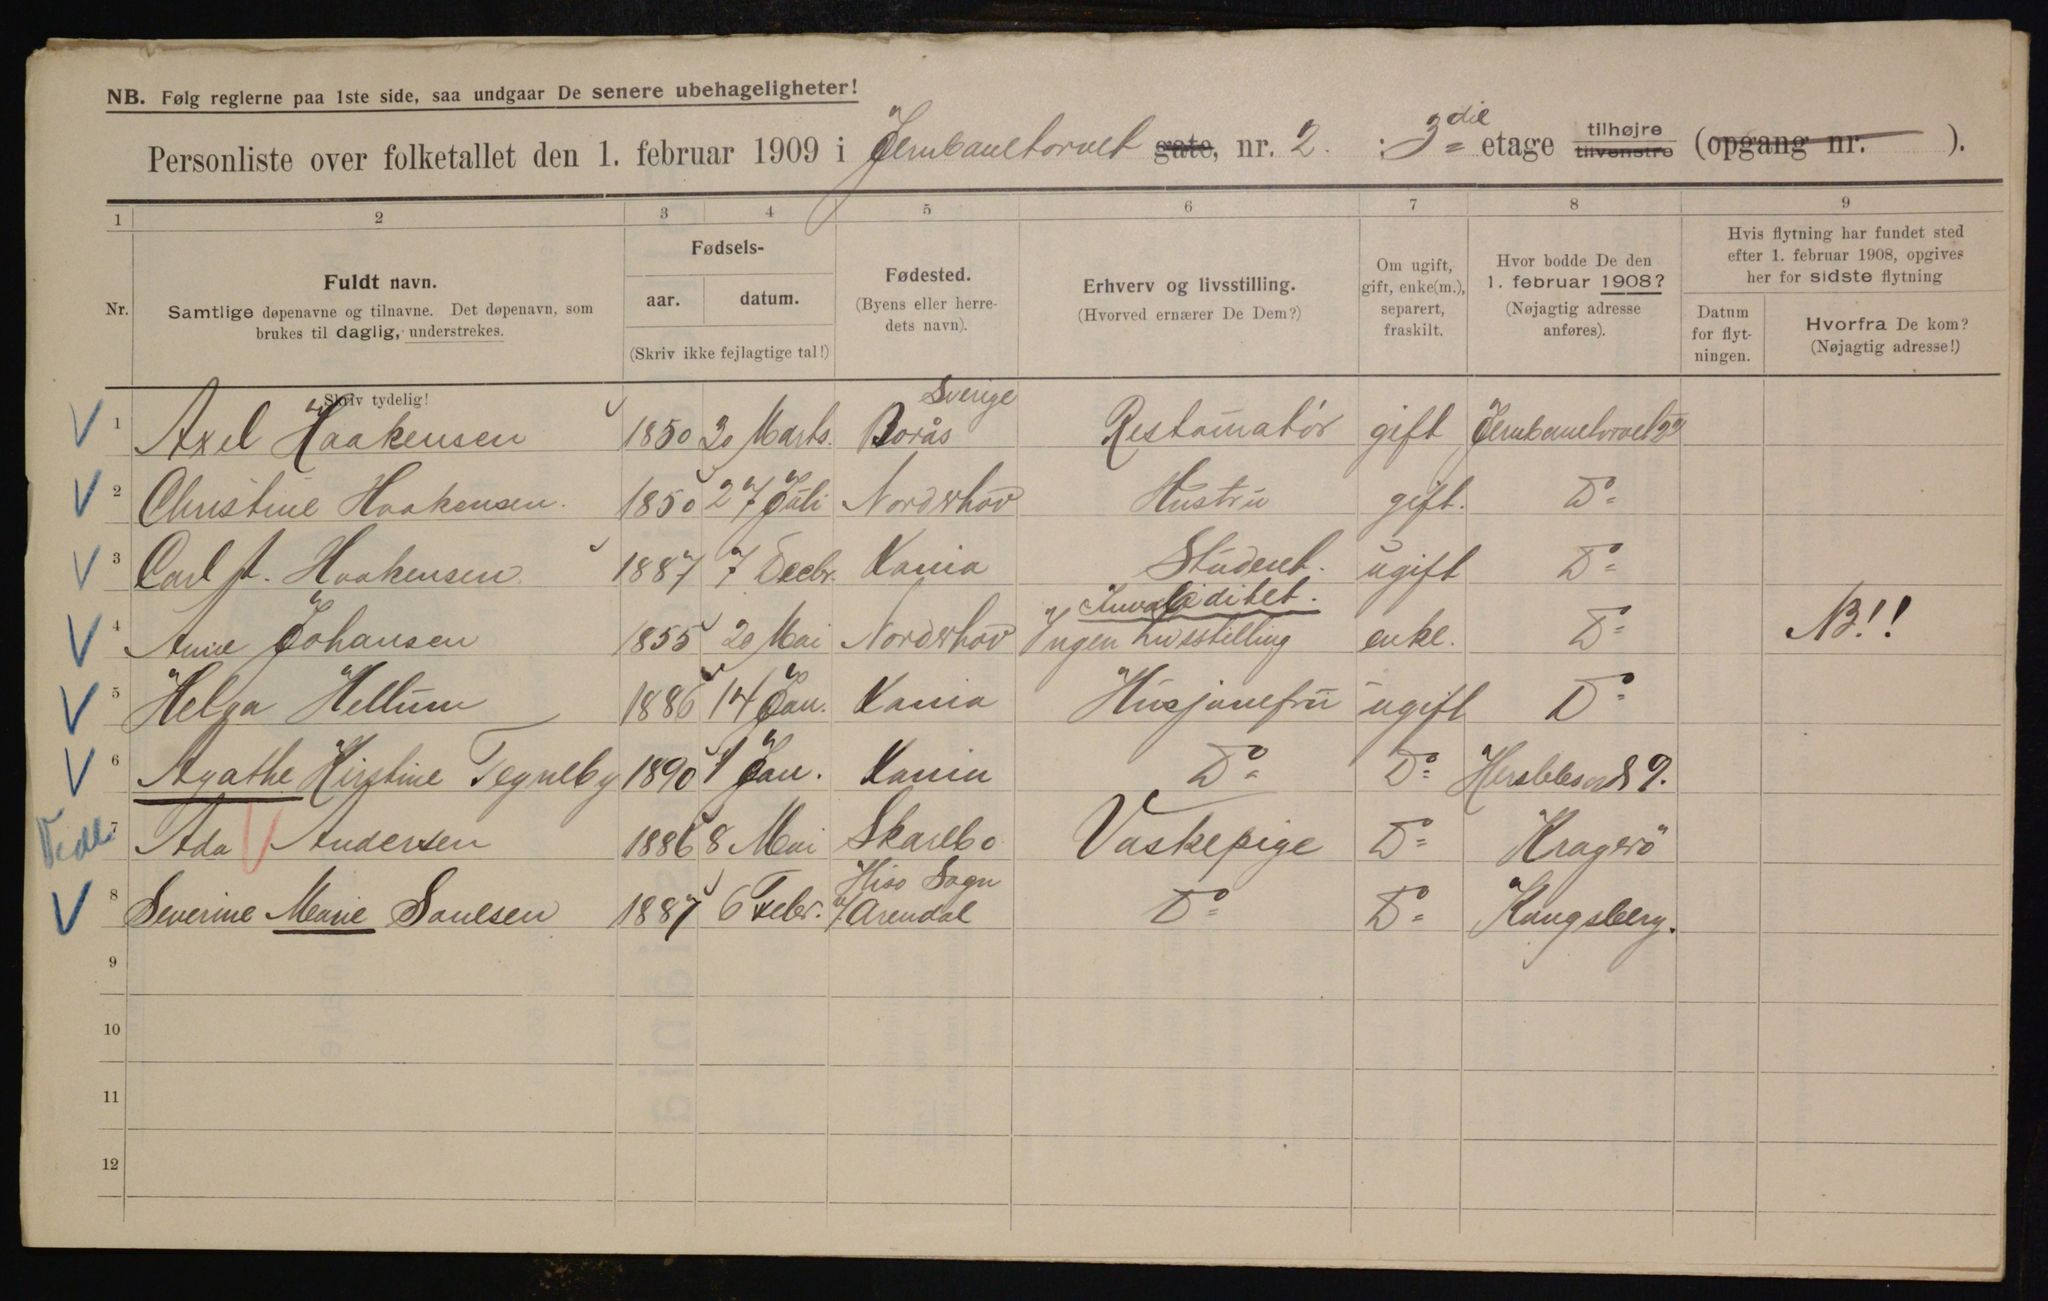 NB. Følg reglerne paa 1ste side, saa undgaar De senere ubehageligheter!
Personliste over folketallet den 1. februar 1909 i Jernbanetorvet gate, nr. 2. : 3die etage tilhøjre tilvenstre (opgang nr. ).
1 2 3 4 5 6 7 8 9
Nr.
Fuldt navn.
Samtlige døpenavne og tilnavne. Det døpenavn, som
brukes til daglig, understrekes.
Skriv tydelig!
Fødsels-
aar. datum.
(Skriv ikke fejlagtige tal!)
Fødested.
(Byens eller herre-
dets navn).
Erhverv og livsstilling.
(Hvorved ernærer De Dem?)
Om ugift,
gift, enke(m.),
separert,
fraskilt.
Hvor bodde De den
1. februar 1908?
(Nøjagtig adresse
anføres).
Hvis flytning har fundet sted
efter 1. februar 1908, opgives
her for sidste flytning
Datum
for flyt-
ningen.
Hvorfra De kom?
(Nøjagtig adresse!)
Sverige
1 Axel Haakensen 1850 20 Marts. Borås Restauratør gift Jernbanetorvet 2
2 Christine Haakensen. 1850 27 Juli Norderhov Hustru gift. Do
3 Carl A. Haakensen. 1887 7 Decbr. Kania Student. ugift Do
Invaliditet.
4 Anne Johansen 1855 20 Mai Norderhov Ingen Livsstilling enke. Do NB!!
5 Helga Hellum 1886 14 Jan. Kania Husjomfru ugift Do
6 Agathe Kirstine Tegneby 1890 1 Jan. Kania Do Do 9.
7 Ada Andersen 1886 8 Mai Vaskepige Do Kragerö
Hisø Sogn
8 Severine Marie 1887 6 Febr. Arendal Do Do Kongsberg.
9
10
11
12